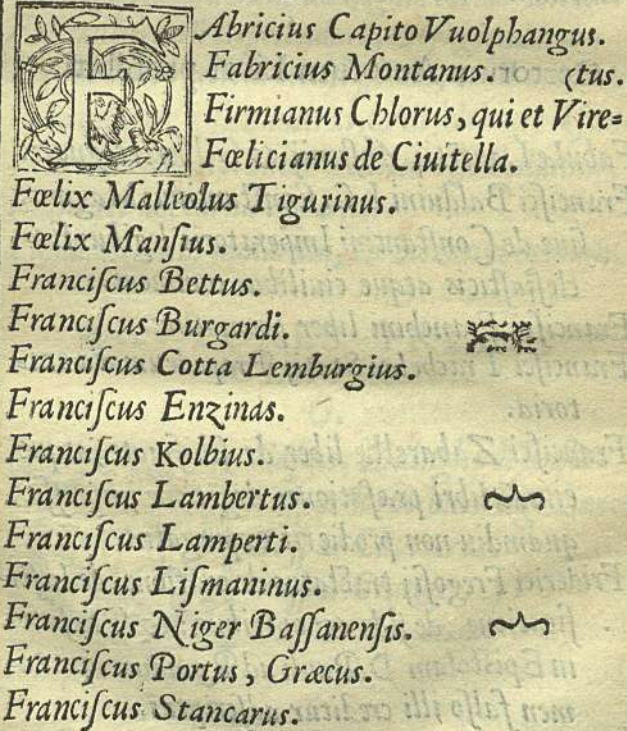 FAbricius Capito Vuolphangus.
Fabricius Montanus. (tus.
Firmianus Chlorus, qui et Vire=
Fœlicianus de Ciuitella.
Fœlix Malleolus Tigurinus.
Fœlix Manſius.
Franciſcus Bettus.
Franciſcus Burgardi.
Franciſcus Cotta Lemburgius.
Franciſcus Enzinas.
Franciſcus Kolbius.
Franciſcus Lambertus.
Franciſcus Lamperti.
Franciſcus Liſmaninus.
Franciſcus Niger Baſſanenſis.
Franciſcus Portus, Græcus.
Franciſcus Stancarus.